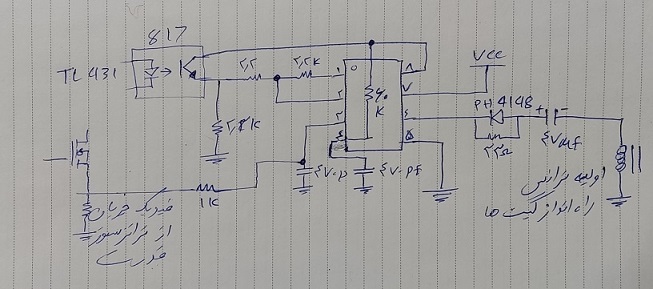 817
TL431
۲,۲
۲,۲K
۲,۲K
۱
۲
۳
۴
۸
۷
۶
۵
K
VCC
PH4148
+ -
۲۲Ω
۴۷μf
۴۷۰p
۴۷۰pf
1K
فیدبک جریان
از ترانزیستور
قدرت
اولیه ترانس
راه انداز گیت ها